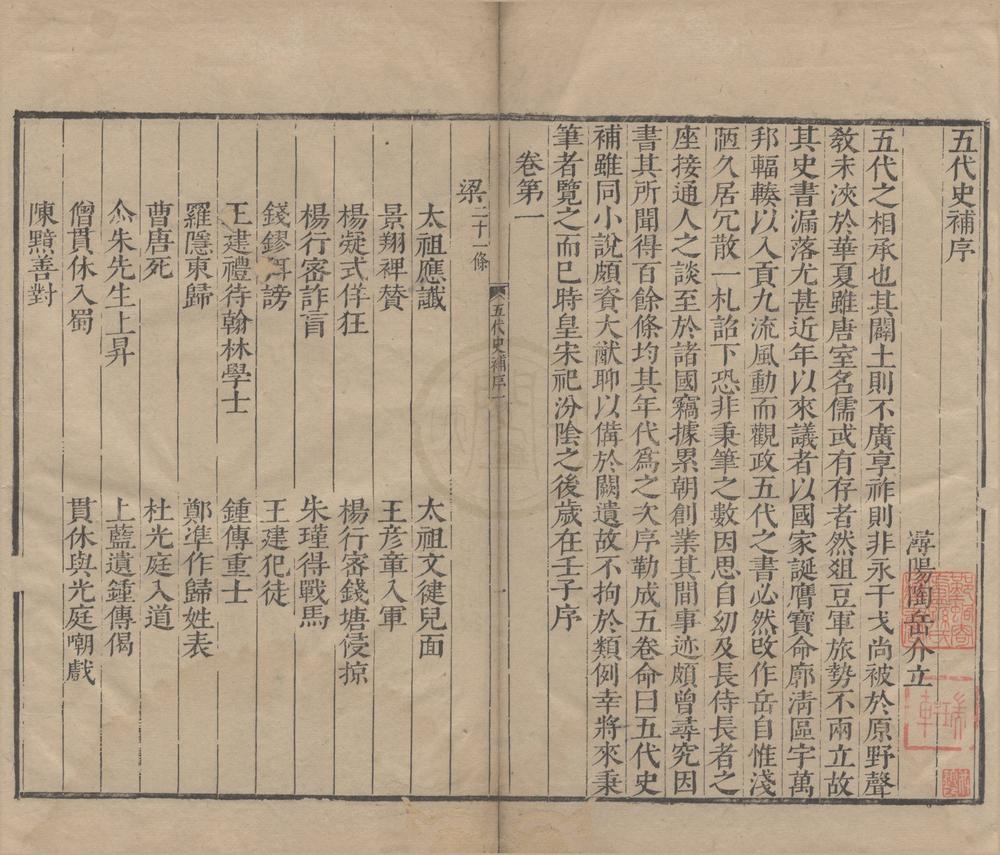 五代史補序
潯陽陶岳介立
五代之相承也其闢土則不廣享祚則非永干戈尚被於原野聲
敎未浹於華夏雖唐室名儒或有存者然俎豆軍旅勢不兩立故
其史書漏落尤甚近年以來議者以國家誕膺寶命廓淸區宇萬
邦輻輳以入貢九流風動而觀政五代之書必然改作岳自惟淺
陋久居冗散一札詔下恐非秉筆之數因思自幼及長侍長者之
座接通人之談至於諸國竊據累朝創業其間事迹頗曾尋究因
書其所聞得百餘條均其年代爲之次序勒成五卷命曰五代史
補雖同小說頗資大猷聊以備於闕遺故不拘於類例幸將來秉
筆者覽之而已時皇宋祀汾陰之後歲在壬子序
卷第一
五代史補序 一
梁二十一條
太祖應讖 太祖文健兒面
景翔裨贊 王彦章入軍
楊凝式佯狂 楊行密錢塘侵掠
楊行密詐盲 朱瑾得戰馬
錢鏐弭謗 王建犯徒
王建禮待翰林學士 鍾傳重士
羅隱東歸 鄭準作歸姓表
曹唐死 杜光庭入道
朱先生上昇 上藍遺鍾傳偈
僧貫休入蜀 貫休與光庭嘲戲
陳黯善對